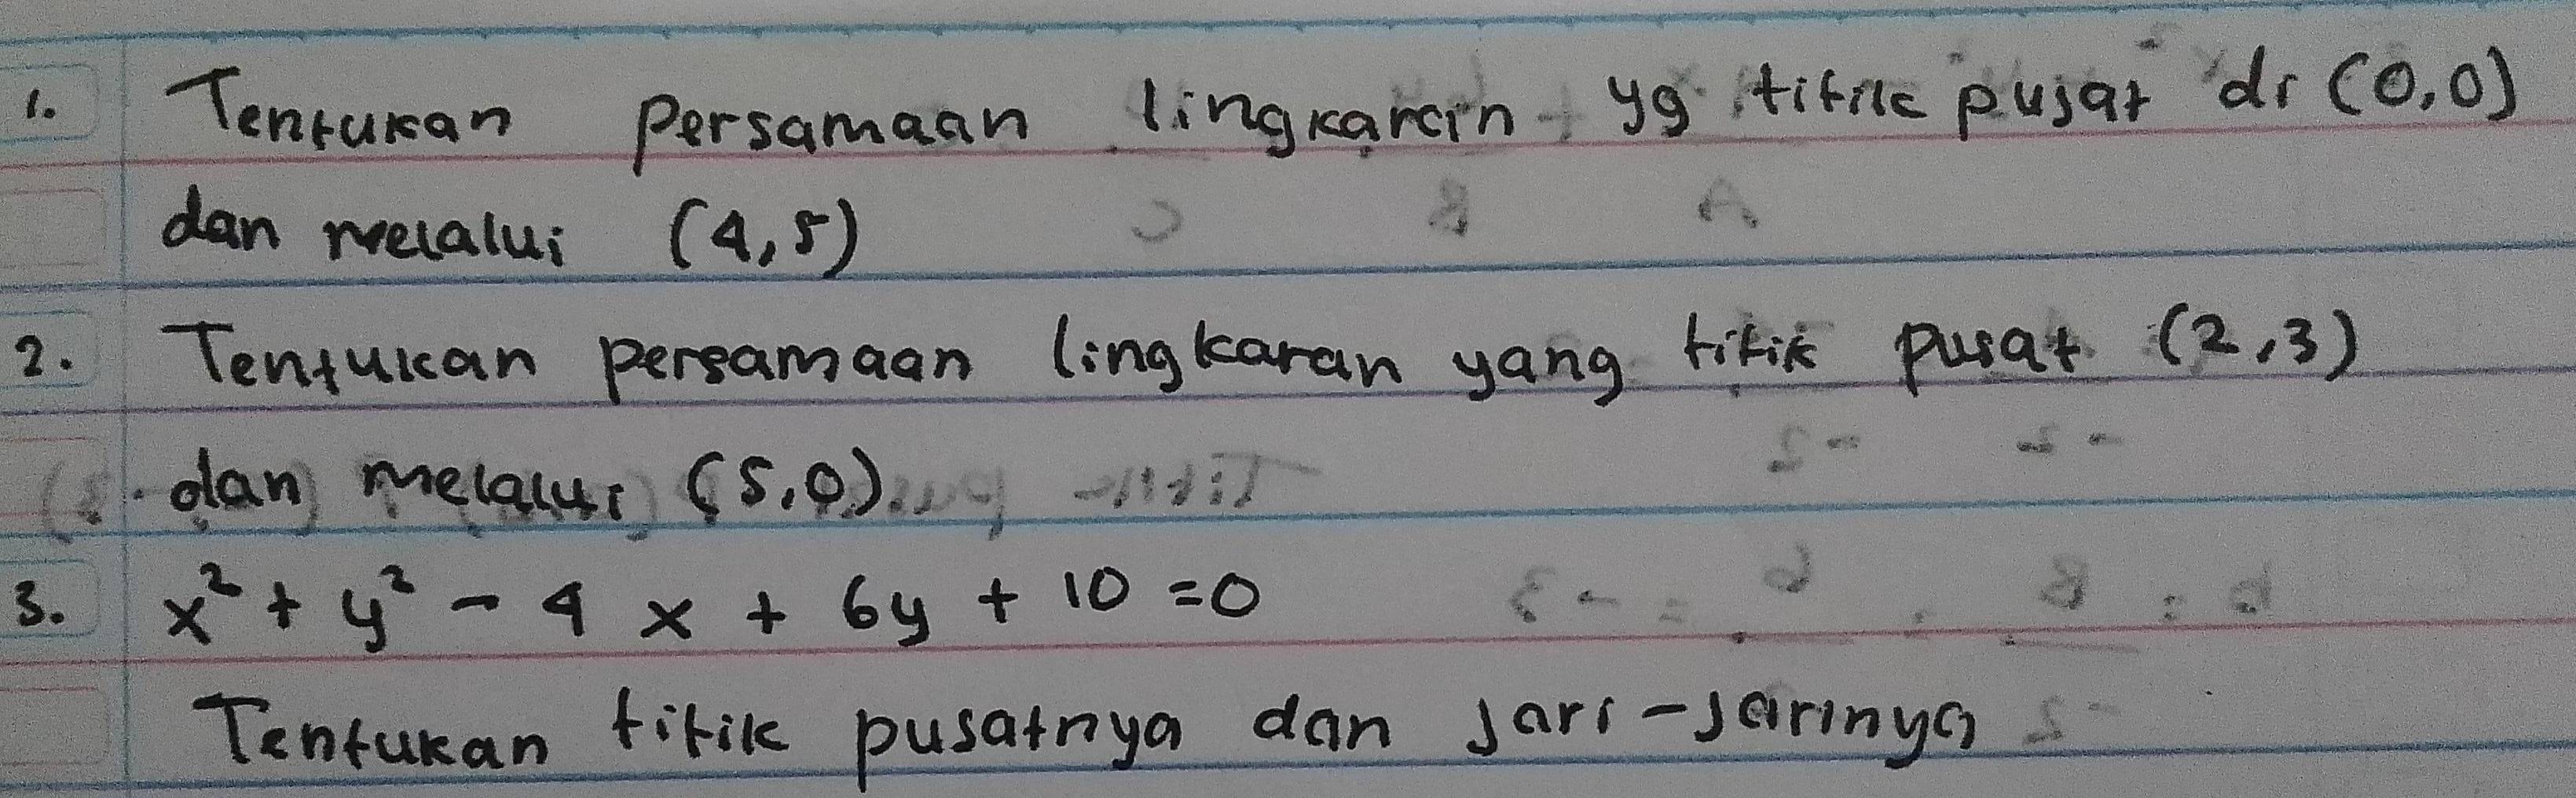 1. Tentukan persamaan lingkaran yg titik pusat di (0,0)
dan melalui (4,5)
2. Tentukan persamaan lingkaran yang titik pusat (2,3)
dan melalui (5,0).
3. x² + y² - 4x + 6y + 10 = 0
Tentukan titik pusatnya dan jari-jarinya